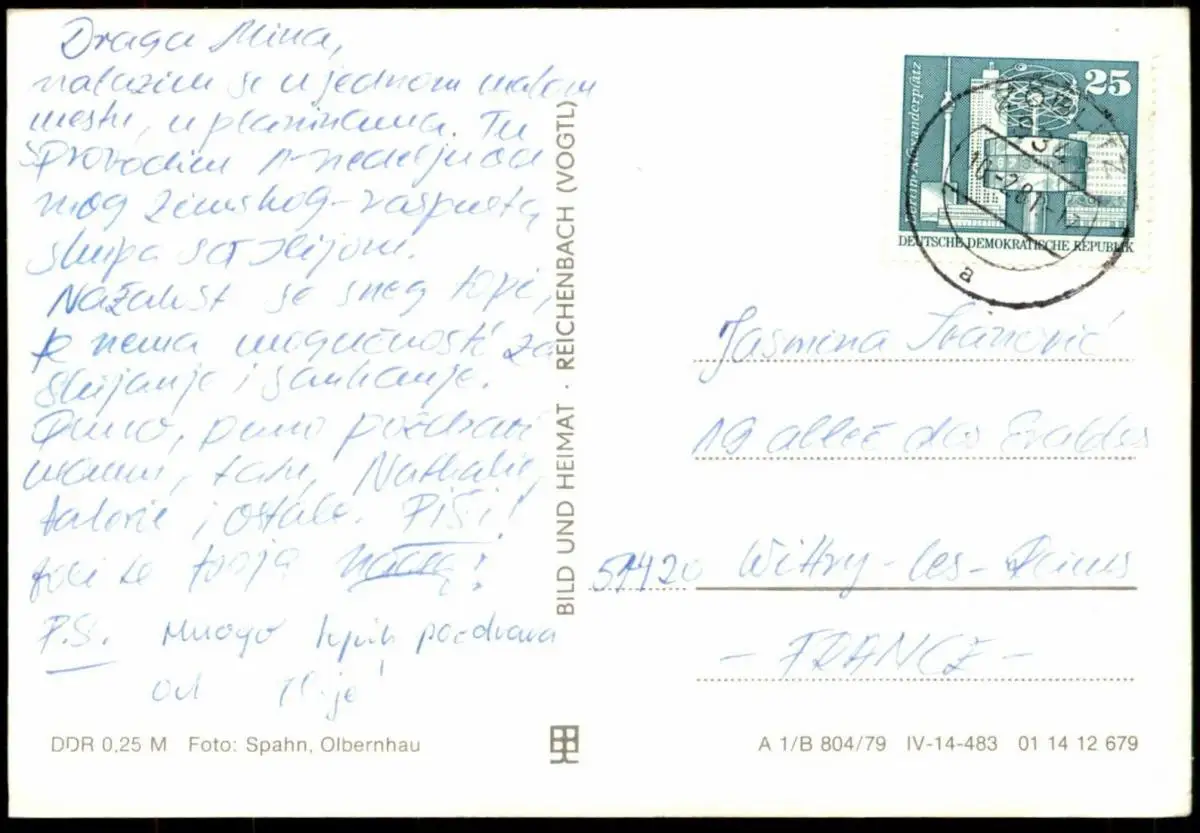 Draga Mina,
nalazim se u jednom malom
mestu, u planinama. Tu
provodim nedelju od
mog zimskog raspusta
skupa sa Ilijom.
Nažalost se sneg topi,
je nema mogućnosti za
skijanje i sankanje.
Puno, puno pozdravi
mamu, tatu, Nathalie,
i ostale. PIŠI!
voli te tvoja
P.S. Mnogo lepih pozdrava
od Ilije!
BILD UND HEIMAT · REICHENBACH (VOGTL)
Berlin-Alexanderplatz
25
DEUTSCHE DEMOKRATISCHE REPUBLIK
a
Jasmina Ivanović
19 allée des
51420 Wittry-les-Reims
- FRANCE -
DDR 0,25 M Foto: Spahn, Olbernhau
A 1/B 804/79 IV-14-483 01 14 12 679